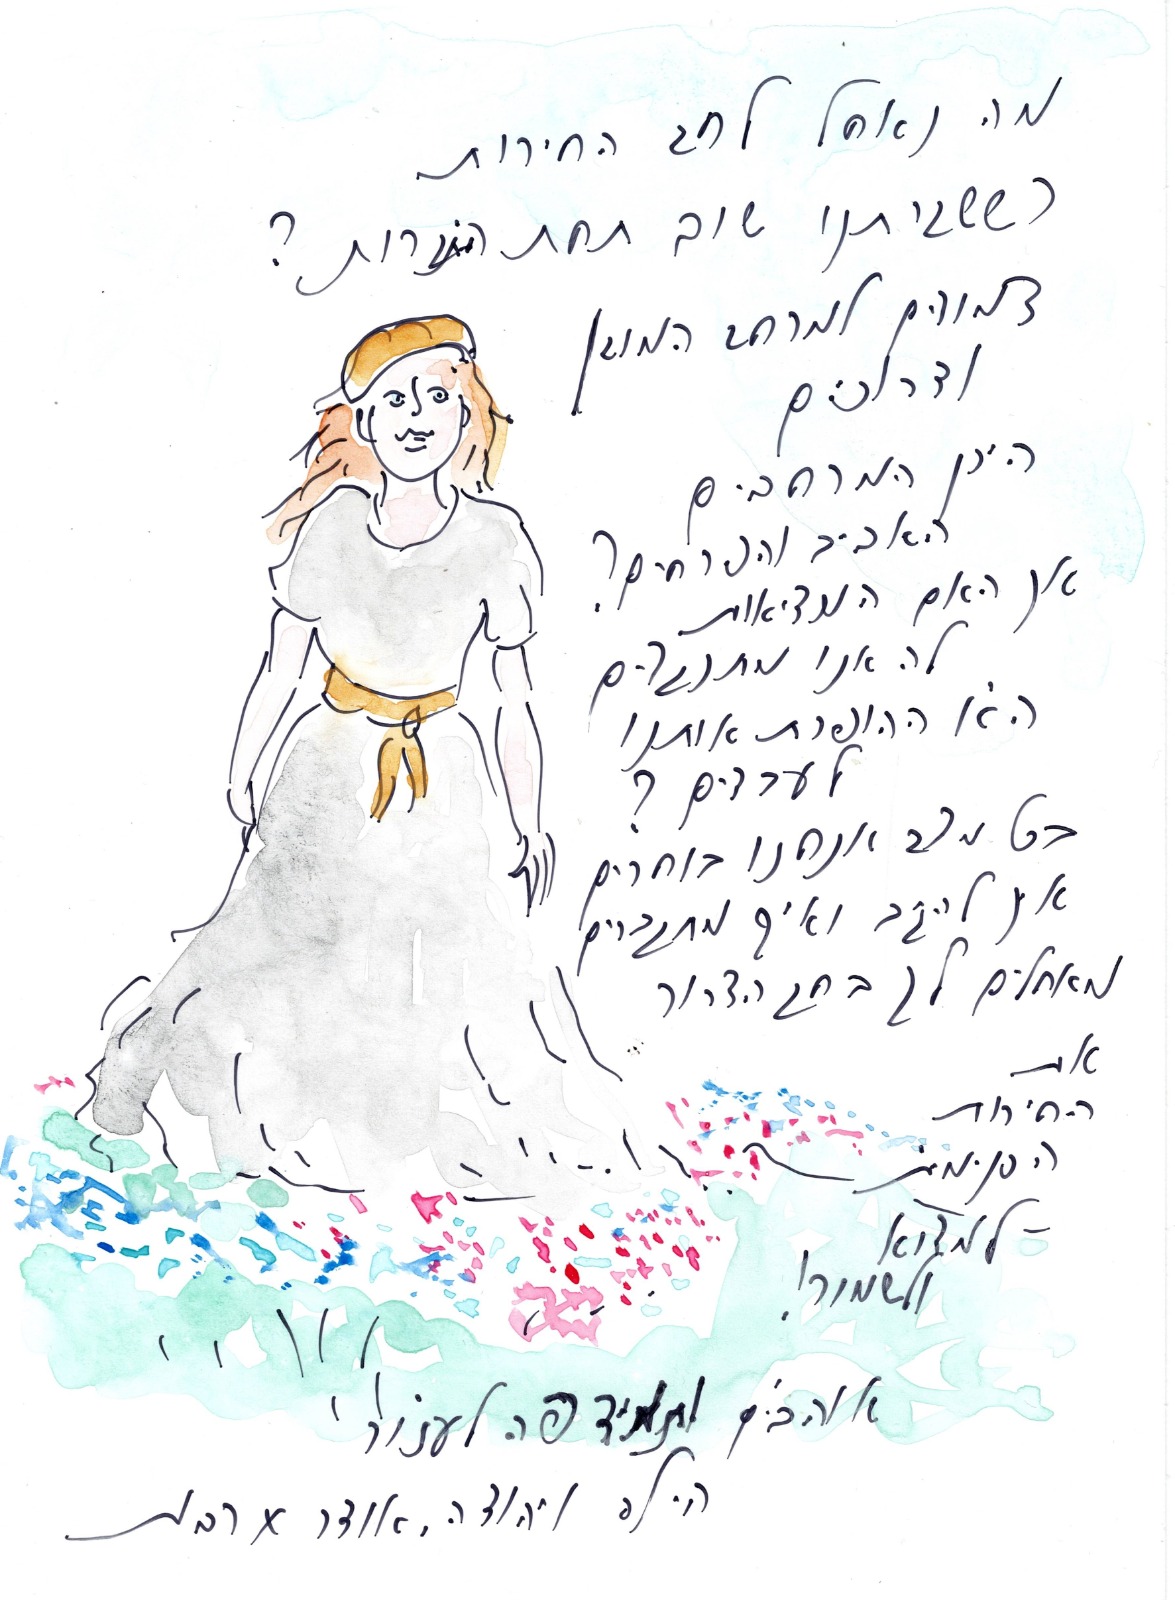 מה נאחל לחג החירות
כששגרתנו שוב תחת הגזרות?
צמודים למרחב המוגן
ודרוכים
היכן המרחבים
האביב והפרחים?
אך האם המציאות
לה אנו מתנגדים
היא ההופכת אותנו
לעבדים?
בכל מצב אנחנו בוחרים
איך להגיב ואיך מתגברים
מאחלים לך בחג הדרור
את
החירות
הפנימית
- למצוא
ולשמור!
אוהבים ותמיד פה לעזור
הילה ויהודה, אוצר